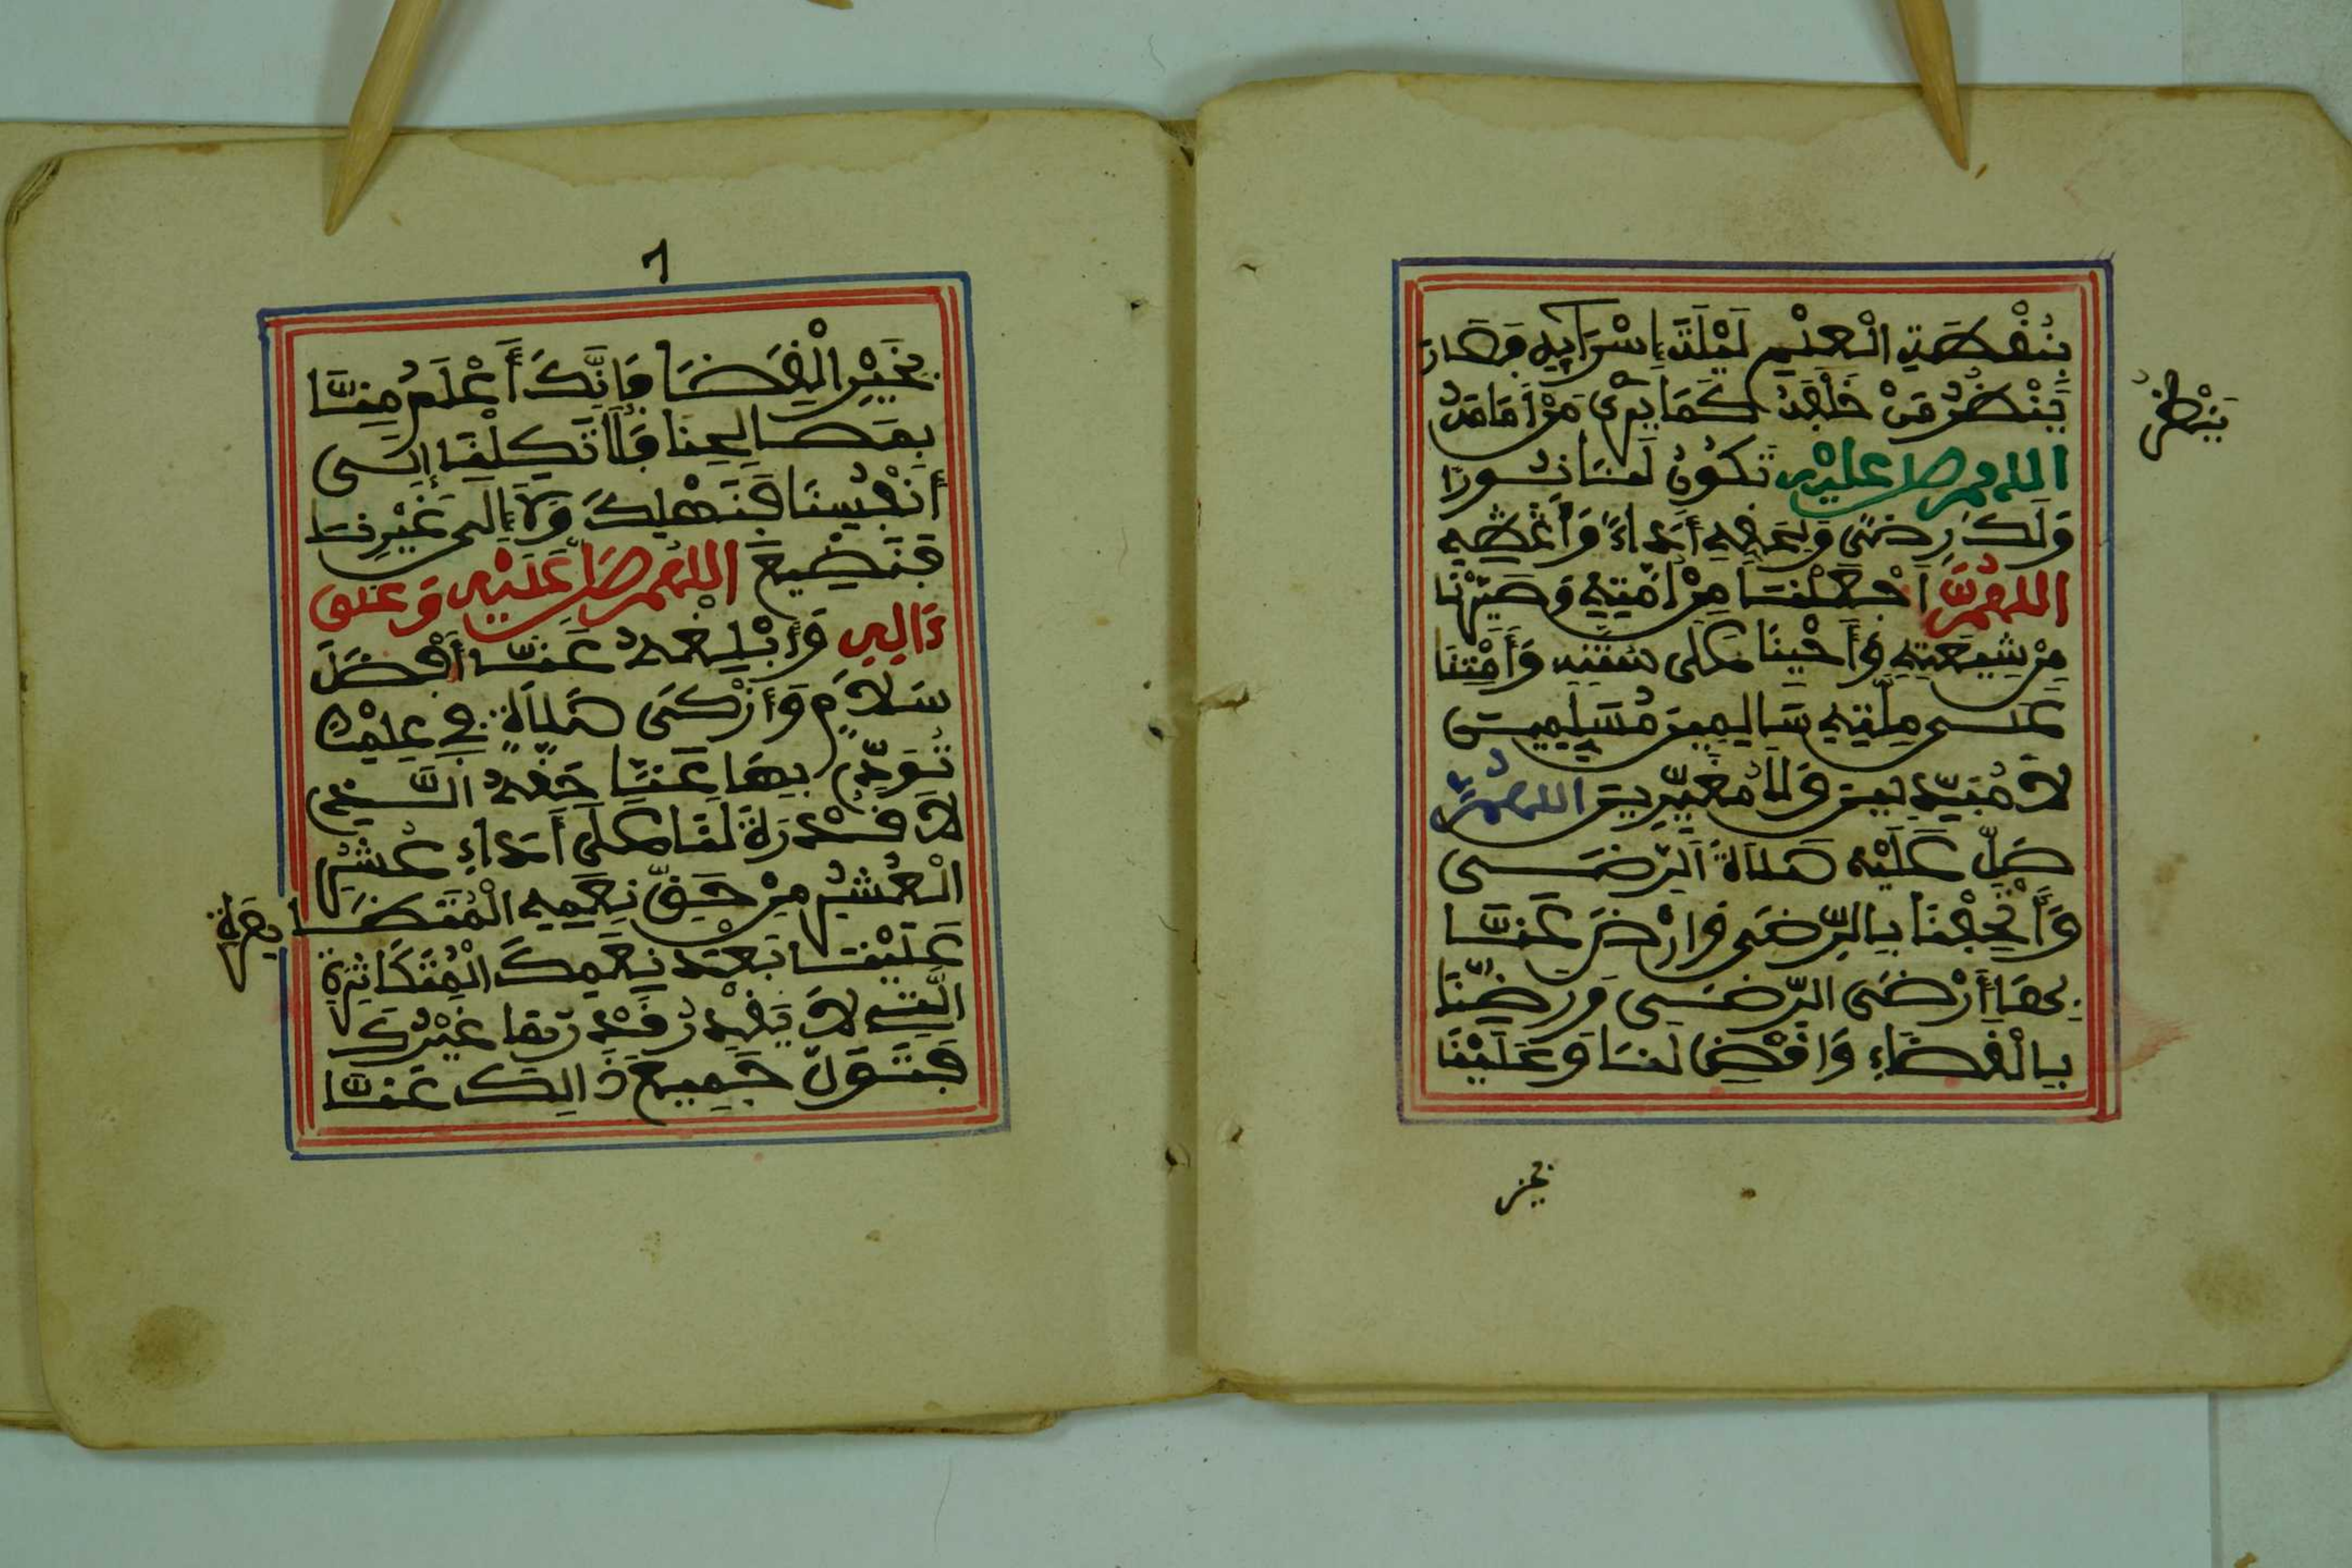 بِنُقْطَةِ الْعِلْمِ لَيْلَةَ إِسْرَايِهِ فَصَارَ
يَنْظُرُ مَنْ خَلْفَهُ كَمَا يَرَى مَنْ أَمَامَهُ
ينظر
اللهم صل عليه تَكُونُ لَنَا نُورًا
وَلَكَ رِضًى وَلِحَقِّهِ أَدَاءً وَأَعْطِهِ
اللهُمَّ اجْعَلْنَا مِنْ أُمَّتِهِ وَصَيِّرْنَا
مِنْ شِيعَتِهِ وَأَحْيِنَا عَلَى سُنَّتِهِ وَأَمِتْنَا
عَلَى مِلَّتِهِ سَالِمِينَ مُسْلِمِينَ
لَا مُبَدِّلِينَ وَلَا مُغَيِّرِينَ اللهُمَّ
صَلِّ عَلَيْهِ صَلَاةَ الرِّضَى
وَأَتْحِفْنَا بِالرِّضَى وَارْضَ عَنَّا
بِهَا أَرْضَى الرِّضَى وَرَضِّنَا
بِالْقَضَاءِ وَاقْضِ لَنَا وَعَلَيْنَا
بخير
٦
بِخَيْرِ الْقَضَا فَإِنَّكَ أَعْلَمُ مِنَّا
بِمَصَالِحِنَا فَلَا تَكِلْنَا إِلَى
أَنْفُسِنَا فَنَهْلِكَ وَلَا إِلَى غَيْرِنَا
فَنَضِيعَ اللهُمَّ صَلِّ عَلَيْهِ وَعَلَى
ءَالِهِ وَأَبْلِغْهُ عَنَّا أَفْضَلَ
سَلَامٍ وَأَزْكَى صَلَاةٍ فِي عِلْمِكَ
تُؤَدِّي بِهَا عَنَّا حَقَّهُ الَّذِي
لَا قُدْرَةَ لَنَا عَلَى أَدَاءِ عُشْرِ
الْعُشْرِ مِنْ حَقِّ نِعَمِهِ الْمُتَضَا
فرة
عَلَيْنَا بَعْدَ نِعَمِكَ الْمُتَكَاثِرَةِ
الَّتِي لَا يَقْدِرُ قَدْرَهَا غَيْرُكَ
فَتَوَلَّ جَمِيعَ ذَالِكَ عَنَّا